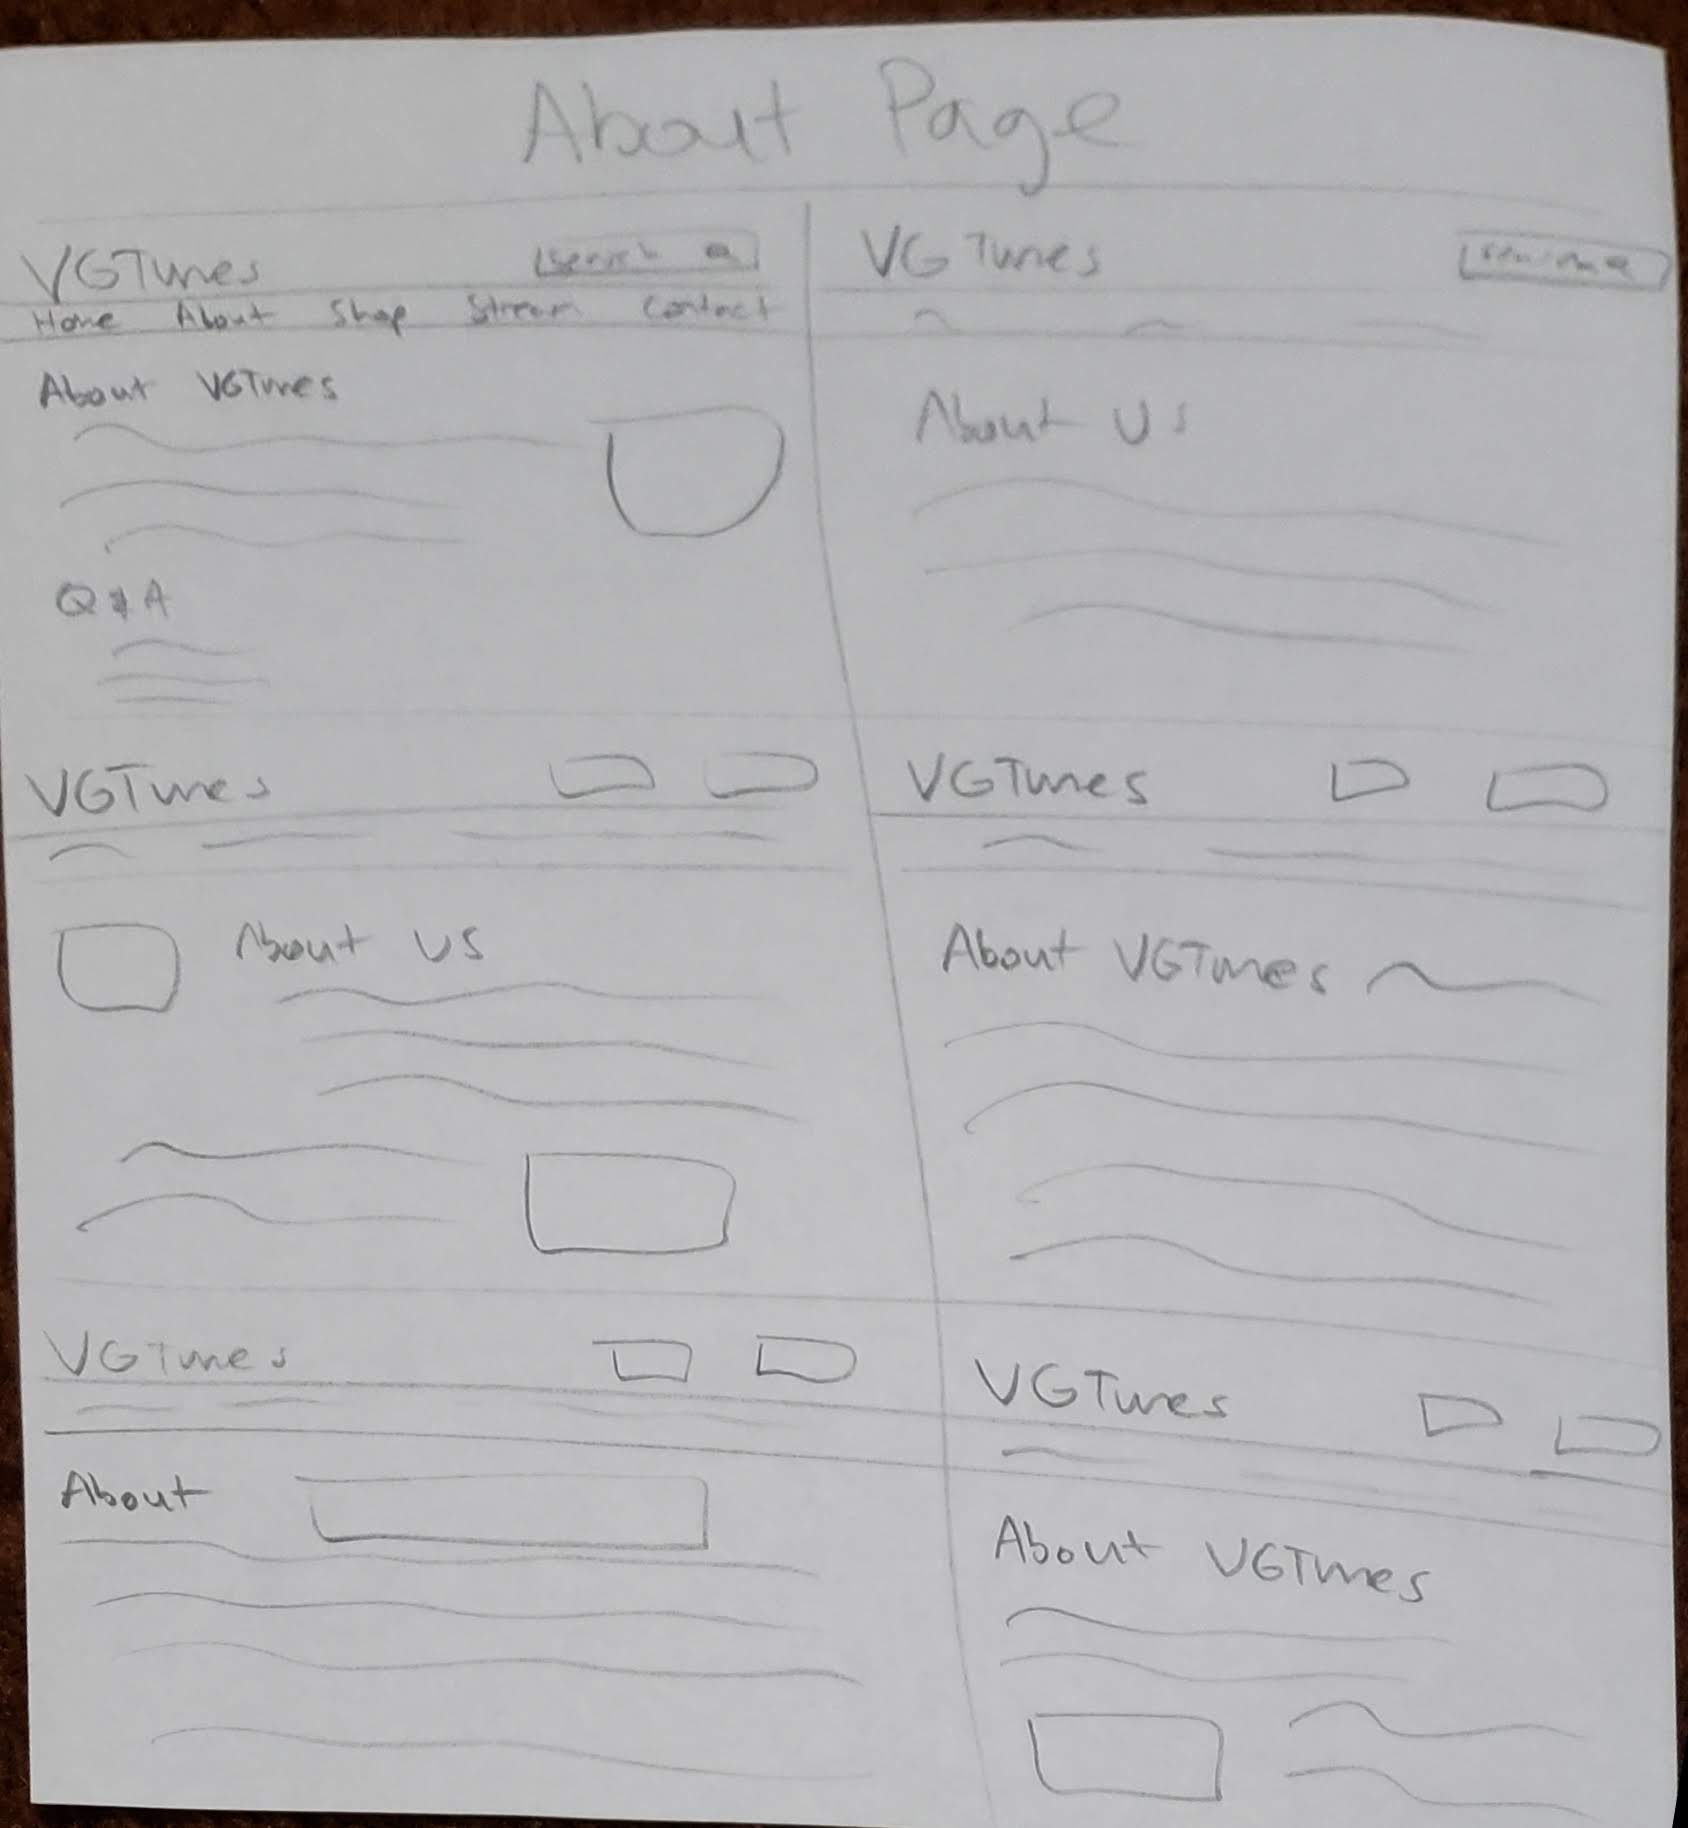 About Page
VGTunes Search
Home About Shop Stream Contact
About VGTunes
Q & A
VGTunes
About Us
VGTunes
About Us
VGTunes
About VGTunes
VGTunes
About
VGTunes
About VGTunes